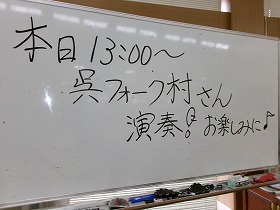 本日 13:00～
呉フォーク村さん
演奏! お楽しみに♪